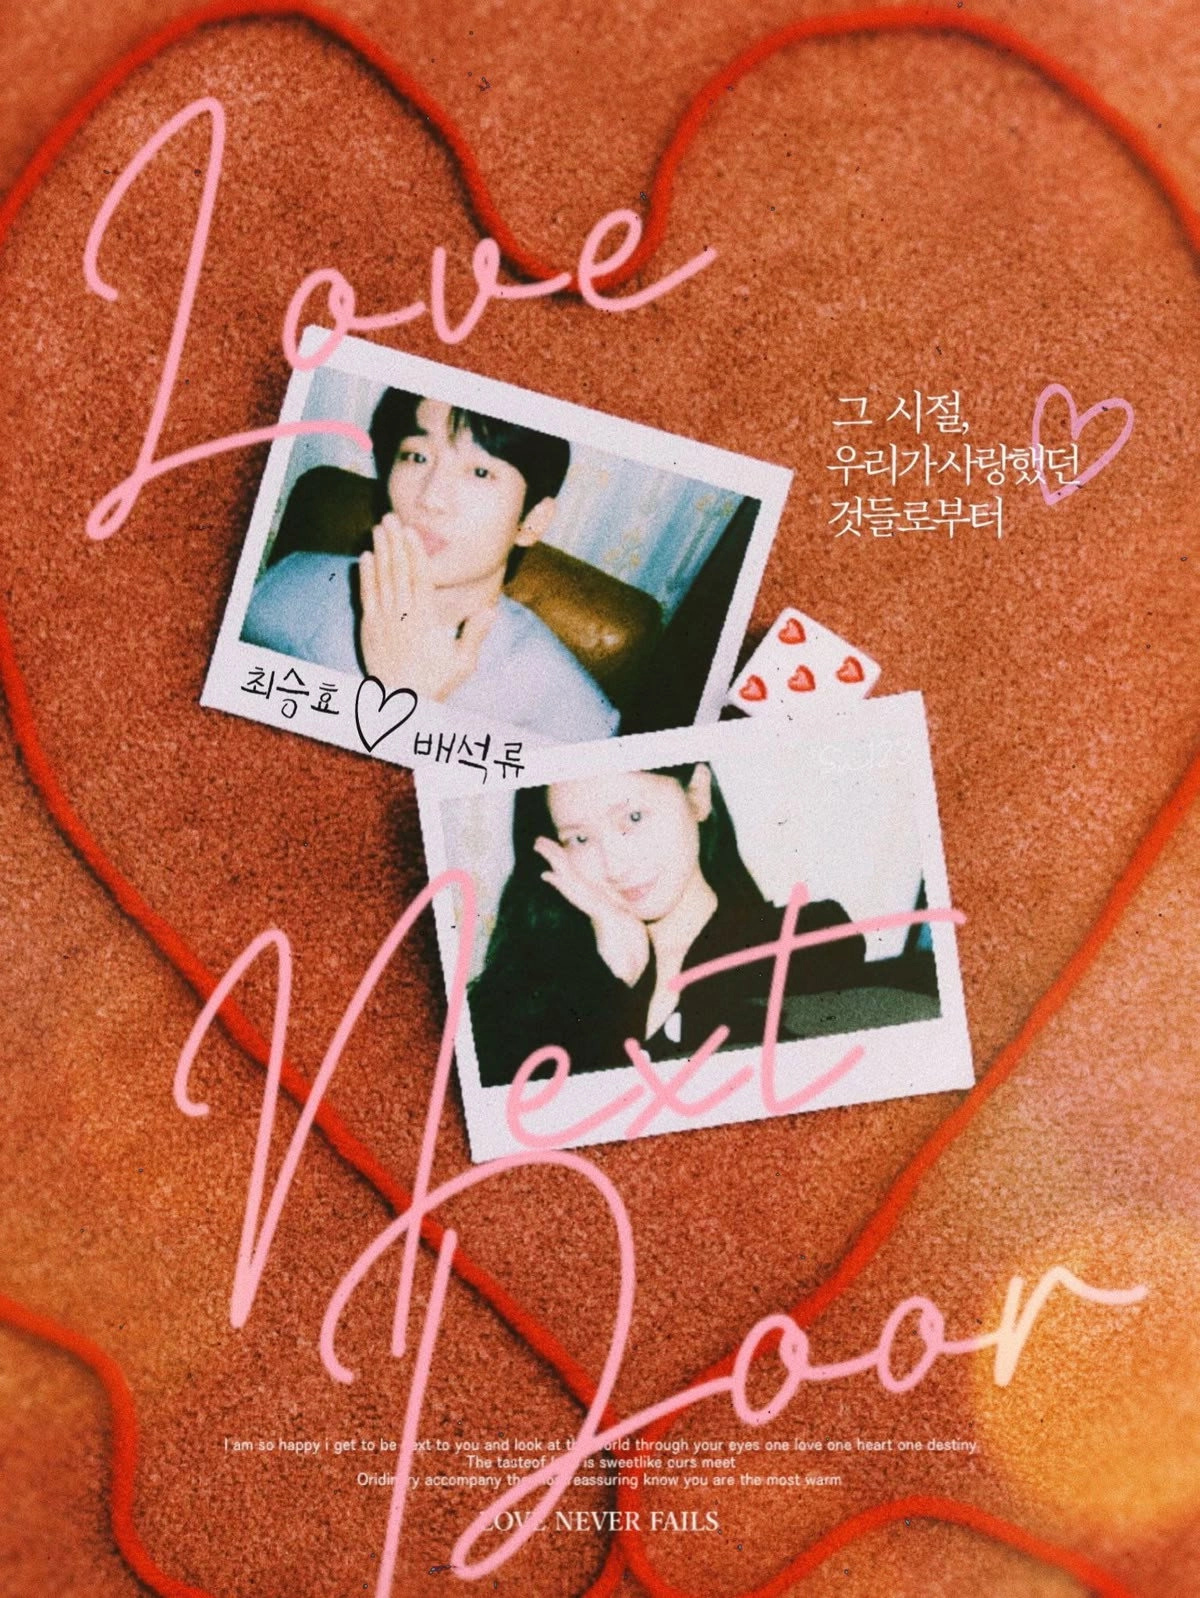 Love
그 시절,
우리가 사랑했던
것들로부터
최승효 ♡ 배석류
Next
Door
I am so happy i get to be next to you and look at the world through your eyes one love one heart one destiny
The tasteof is sweetlike ours meet
accompany reassuring know you are the most warm
LOVE NEVER FAILS